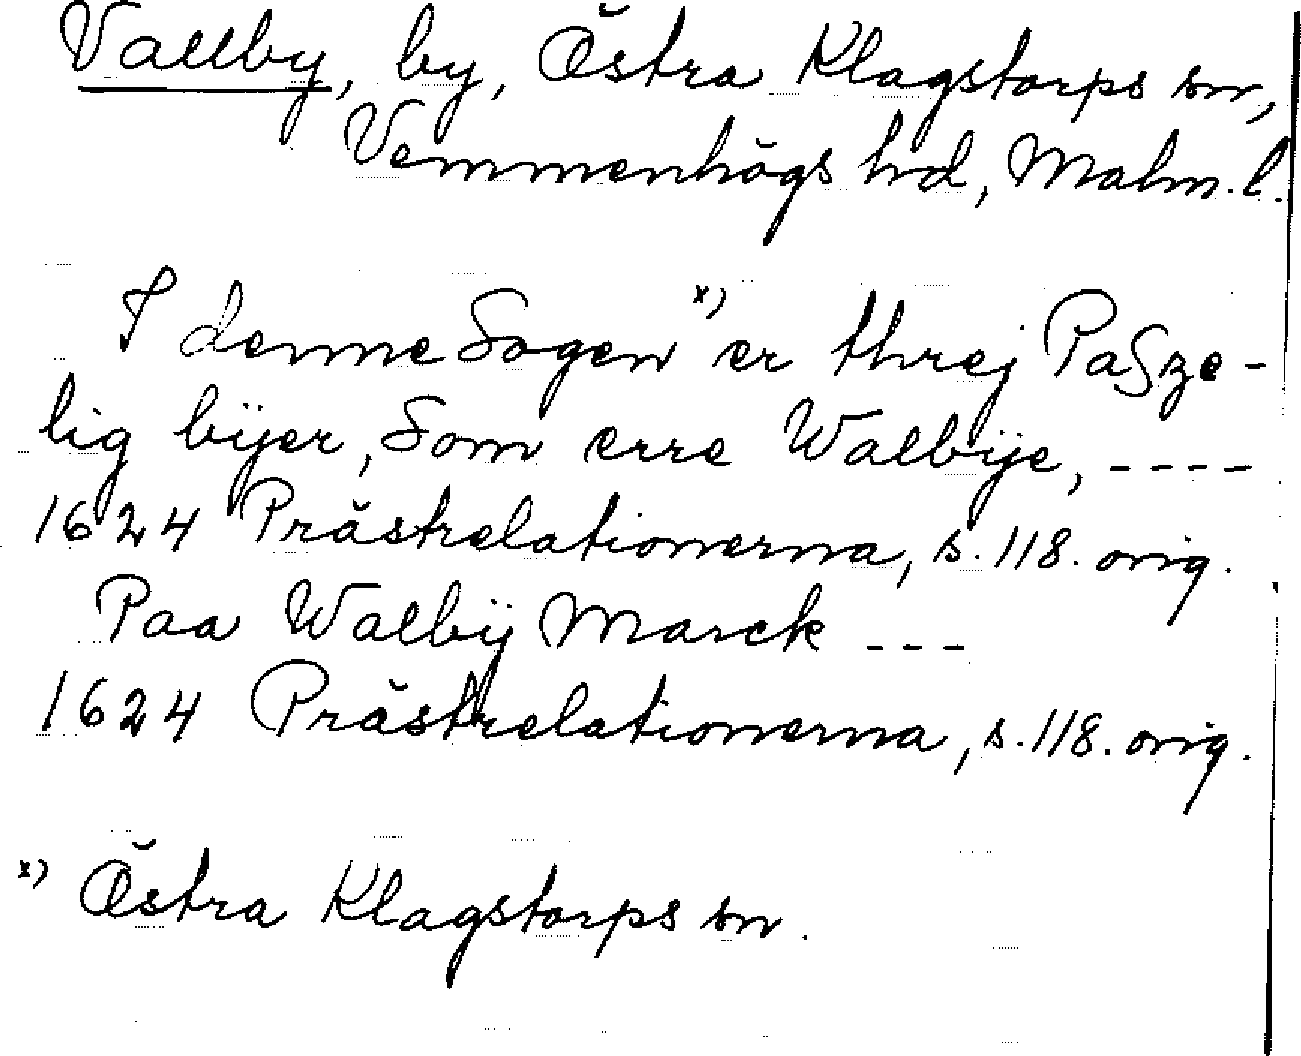 Vallby, by, Östra Klagstorps sn,
Vemmenhögs hd, Malm. l.
I denne Sogen x) er threj PaSze-
lig bÿer, Som erre Walbÿe, ----
1624 Prästrelationerna, s. 118. orig.
Paa Walbÿ Marck ---
1624 Prästrelationerna, s. 118. orig.
x) Östra Klagstorps sn.